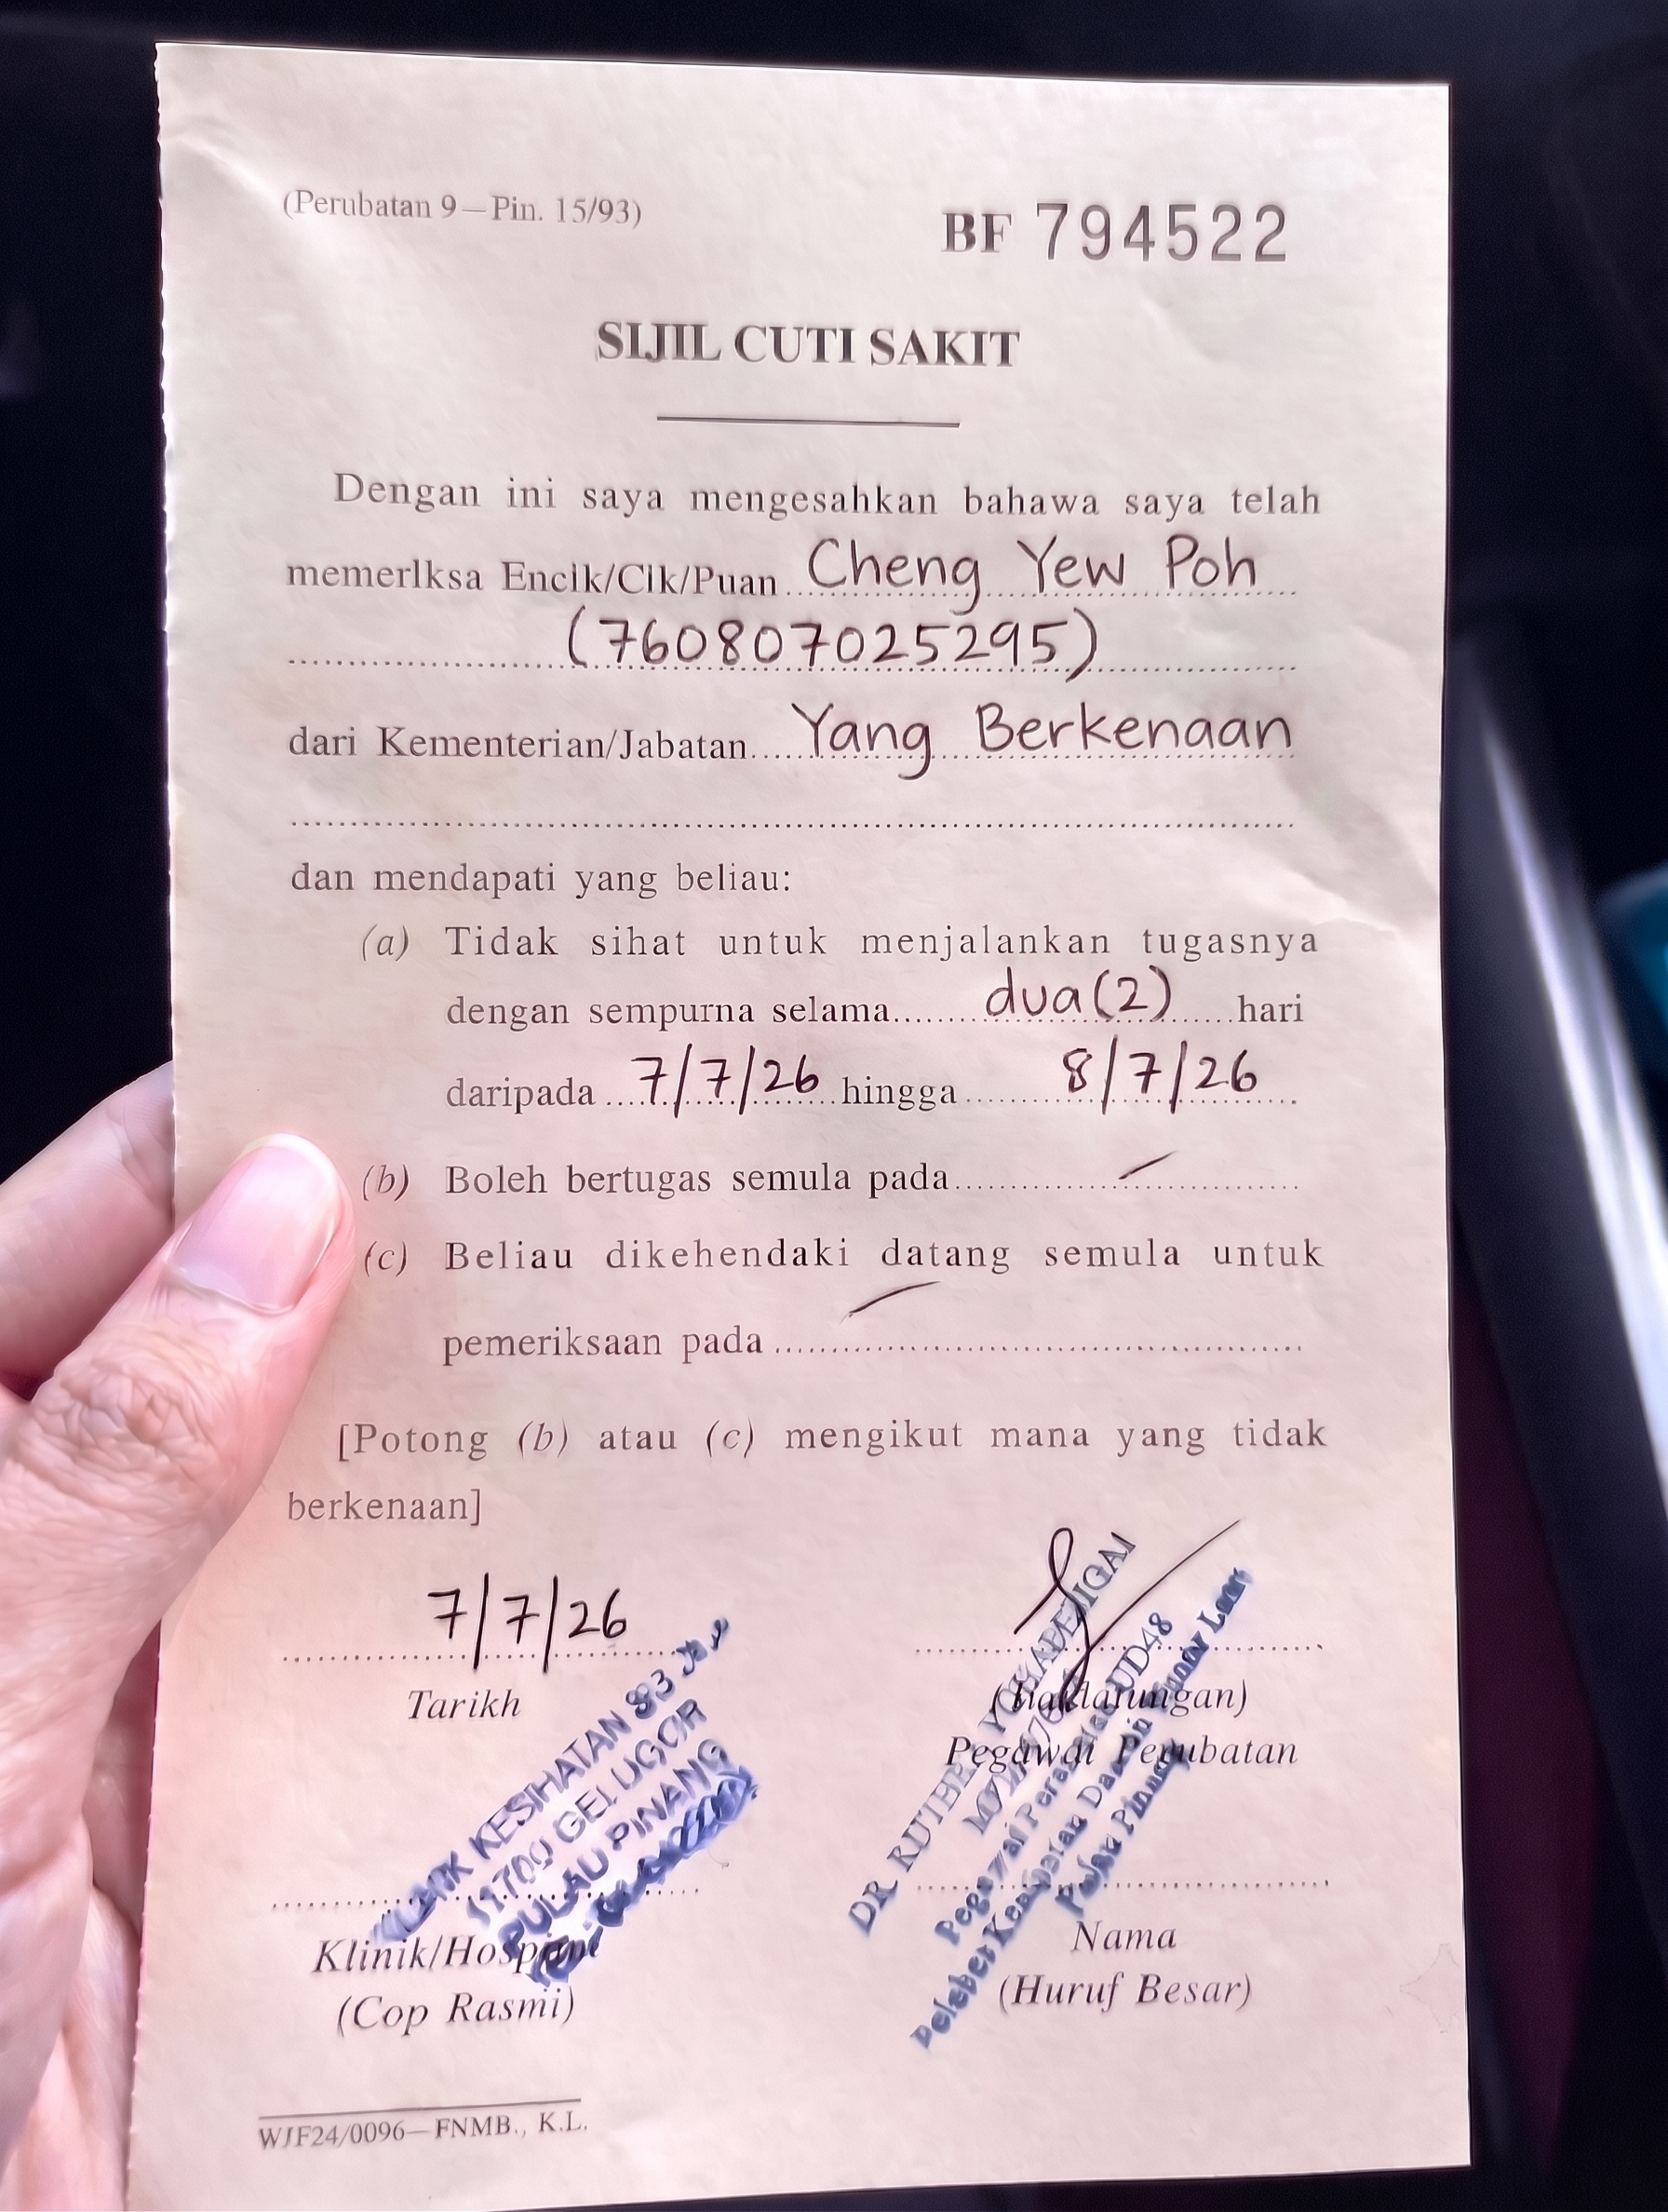 (Perubatan 9—Pin. 15/93)
BF 794522
SIJIL CUTI SAKIT
Dengan ini saya mengesahkan bahawa saya telah
memerlksa Encik/Cik/Puan Cheng Yew Poh
(760807025295)
dari Kementerian/Jabatan Yang Berkenaan
dan mendapati yang beliau:
(a) Tidak sihat untuk menjalankan tugasnya
dengan sempurna selama dua (2) hari
daripada 7/7/26 hingga 8/7/26
(b) Boleh bertugas semula pada
(c) Beliau dikehendaki datang semula untuk
pemeriksaan pada
[Potong (b) atau (c) mengikut mana yang tidak
berkenaan]
7/7/26
Tarikh
KESIHATAN
11700 GELUGOR
PULAU PINANG
Klinik/
(Cop Rasmi)
DR
UD48
Pegawai
Pegawai Perubatan
Nama
(Huruf Besar)
WJF24/0096—FNMB., K.L.